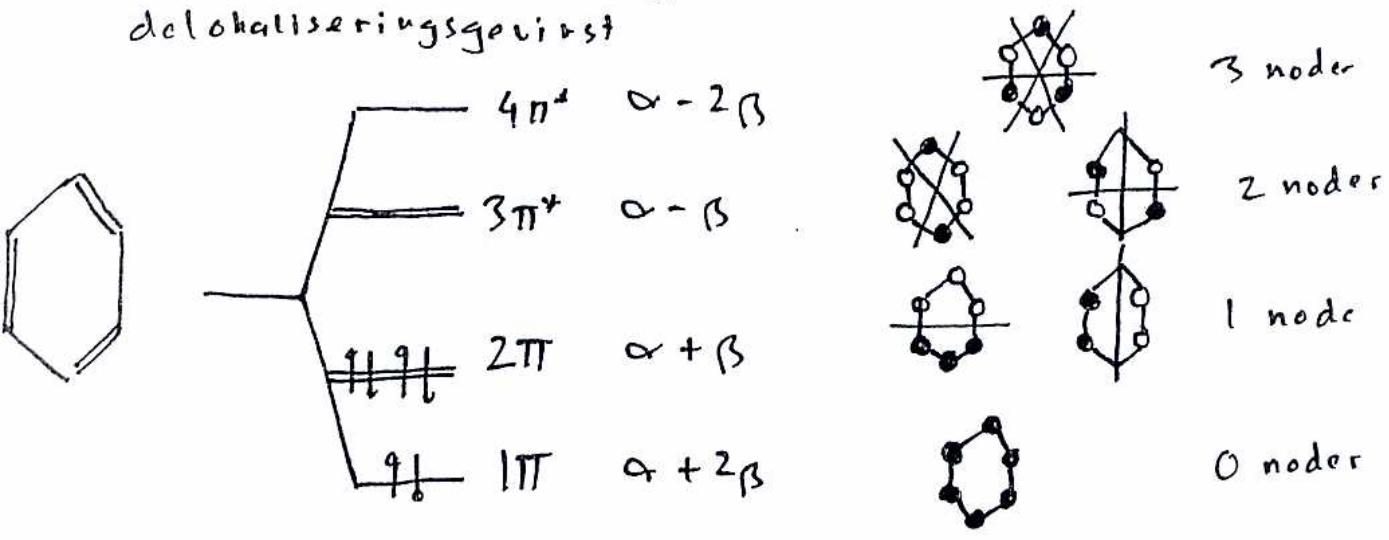 delokaliseringsgevinst
4π* α - 2β 3 noder
3π* α - β 2 noder
2π α + β 1 node
1π α + 2β 0 noder